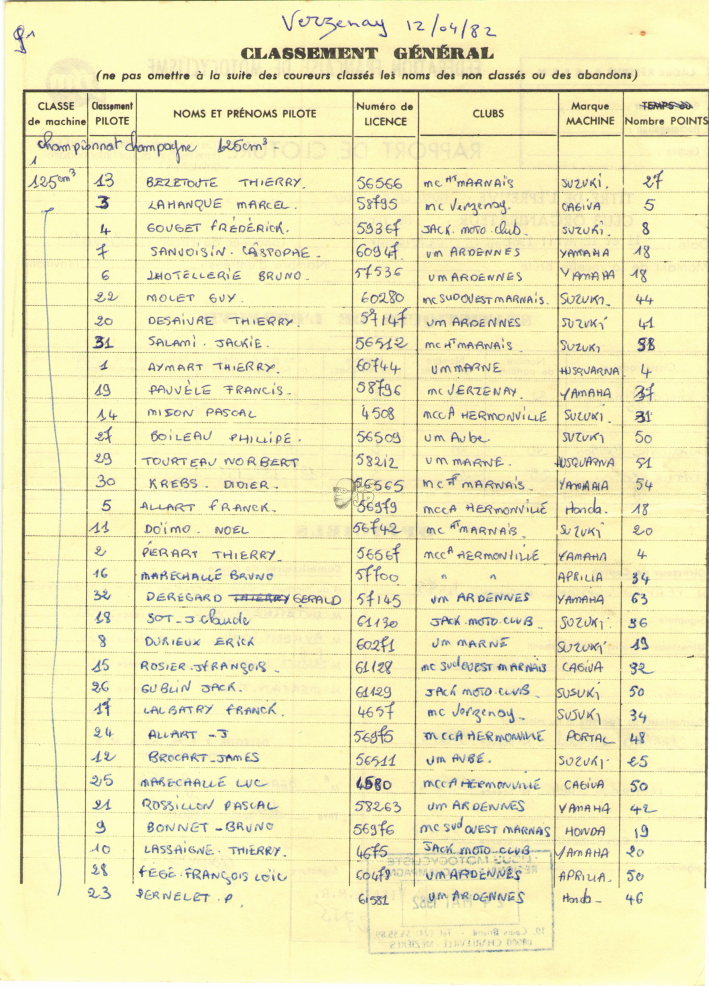 91
Verzenay 12/04/82
CLASSEMENT GÉNÉRAL
(ne pas omettre à la suite des coureurs classés les noms des non classés ou des abandons)
CLASSE de machine | Classement PILOTE | NOMS ET PRÉNOMS PILOTE | Numéro de LICENCE | CLUBS | Marque MACHINE | TEMPS ou Nombre POINTS
championnat champagne 125cm³
1
125cm³ 13 BEZETOUTE THIERRY. 56566 mc Ht MARNAIS SUZUKI. 27
3 LAHANQUE MARCEL. 58795 mc Verzenay. CAGIVA 5
4 GOUGET FRÉDÉRICK. 59367 JACK. MOTO club. SUZUKI. 8
7 SANVOISIN. 60947 um ARDENNES YAMAHA 18
6 LHOTELLERIE BRUNO. 57536 um ARDENNES YAMAHA 18
22 MOLET GUY. 60280 mc SUD OUEST MARNAIS. SUZUKI. 44
20 DESAIVRE THIERRY. 57147 um ARDENNES SUZUKI 41
31 SALAMI. JACKIE. 56512 mc Ht MARNAIS SUZUKI 58
1 AYMART THIERRY. 60744 um MARNE HUSQUARNA 4
19 PAUVÈLE FRANCIS. 58796 mc VERZENAY. YAMAHA 37
14 MISON PASCAL 4508 mccA HERMONVILLE SUZUKI. 31
27 BOILEAU PHILLIPE. 56509 um Aube. SUZUKI 50
29 TOURTEAU NORBERT 58212 um MARNE. HUSQUARNA 51
30 KREBS. DIDIER. 56565 mc Ht MARNAIS. YAMAHA 54
5 ALLART FRANCK. 56979 mccA HERMONVILLE Honda. 18
11 DOÏMO. NOEL 56742 mc Ht MARNAIS. SUZUKI 20
2 PERART THIERRY. 56567 mccA HERMONVILLE YAMAHA 4
16 MARECHALLE BRUNO 57700 " " APRILIA 34
32 DEREGARD THIERRY GERALD 57145 um ARDENNES YAMAHA 63
18 SOT - J Claude 61130 JACK. MOTO. CLUB. SUZUKI. 36
8 DURIEUX ERICK 60271 um MARNE SUZUKI 19
15 ROSIER. J FRANÇOIS. 61128 mc sud OUEST MARNAIS CAGIVA 32
26 GUBLIN JACK. 61129 JACK MOTO CLUB. SUSUKI 50
17 LALBATRY FRANCK. 4657 mc Verzenay. SUSUKI 34
24 ALLART - J 56975 mccA HERMONVILLE PORTAL 48
12 BROCART - JAMES 56511 um AUBE. SUZUKI 25
25 MARECHALLE LUC 4580 mccA HERMONVILLE CAGIVA 50
21 ROSSILLON PASCAL 58263 um ARDENNES YAMAHA 42
9 BONNET - BRUNO 56976 mc sud OUEST MARNAS HONDA 19
10 LASSAIGNE. THIERRY. 4675 JACK. MOTO. CLUB YAMAHA 20
28 FEGE. FRANÇOIS LOIC 60478 um ARDENNES APRILIA. 50
23 PERNELET. P. 61581 um ARDENNES Honda - 46